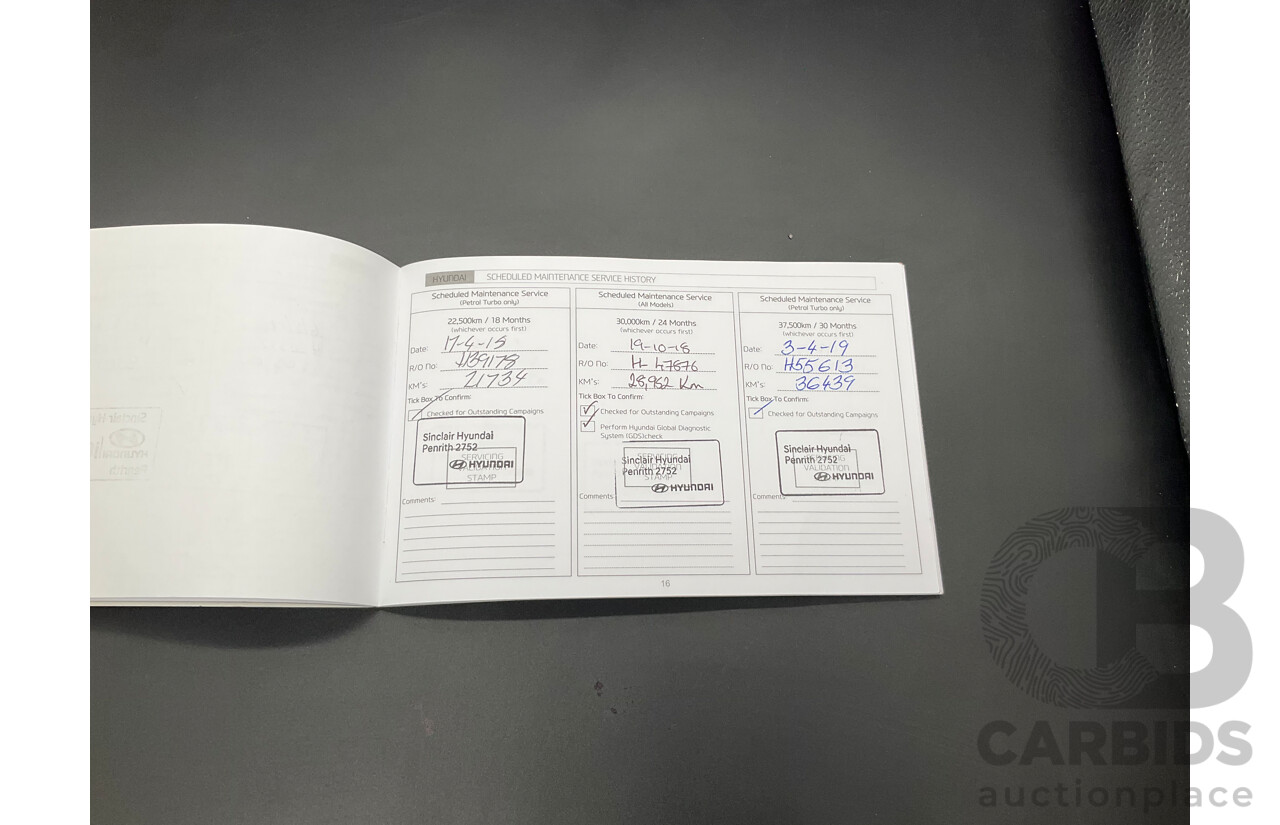 HYUNDAI SCHEDULED MAINTENANCE SERVICE HISTORY
Scheduled Maintenance Service
(Petrol Turbo only)
22,500km / 18 Months
(whichever occurs first)
Date: 17-4-18
R/O No: H39178
KM's: 21734
Tick Box To Confirm:
Checked for Outstanding Campaigns
Sinclair Hyundai
Penrith 2752
SERVICING
VALIDATION
STAMP
HYUNDAI
Comments:
Scheduled Maintenance Service
(All Models)
30,000km / 24 Months
(whichever occurs first)
Date: 19-10-18
R/O No: H-47676
KM's: 28,962 Km
Tick Box To Confirm:
Checked for Outstanding Campaigns
Perform Hyundai Global Diagnostic
System (GDS)check
Sinclair Hyundai
Penrith 2752
STAMP
HYUNDAI
Comments:
Scheduled Maintenance Service
(Petrol Turbo only)
37,500km / 30 Months
(whichever occurs first)
Date: 3-4-19
R/O No: H55613
KM's: 36439
Tick Box To Confirm:
Checked for Outstanding Campaigns
Sinclair Hyundai
Penrith 2752
VALIDATION
HYUNDAI
Comments:
16
CARBIDS
auctionplace